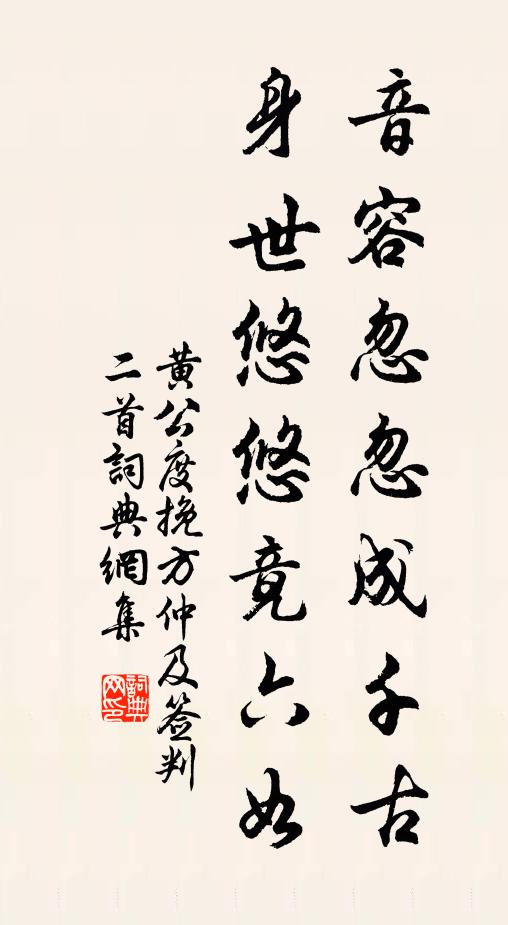 音容忽忽成千古
身世悠悠竟六如
黄公度挽方仲及签判
二首詞典網集
詞典
网印